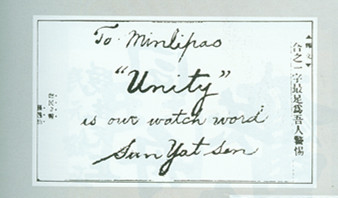 To Minlipao
"Unity"
is our watch word
Sun Yat Sen
合之一字最足爲吾人警惕